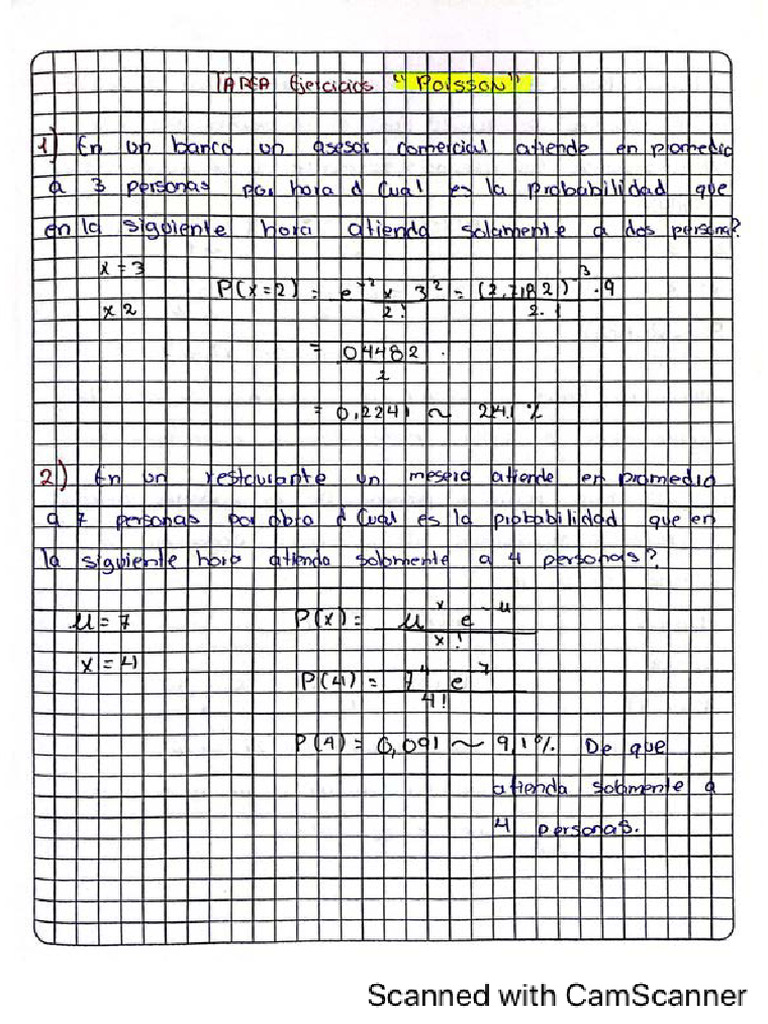 TAREA Ejercicios "Poisson"
1) En un banco un asesor comercial atiende en promedio
a 3 personas por hora ¿Cual es la probabilidad que
en la siguiente hora atienda solamente a dos persona?
x = 3
P(x=2) = e⁻³ x 3² = (2,7182)⁻³ · 9
x 2
2! 2·1
= 0,4482
2
= 0,2241 ~ 22,41 %
2) En un restaurante un mesero atiende en promedio
a 7 personas por ahora ¿Cual es la probabilidad que en
la siguiente hora atienda solamente a 4 personas?
μ = 7
P(x) = μˣ e⁻μ
x!
x = 4
P(4) = 7⁴ e⁻⁷
4!
P(4) = 0,091 ~ 9,1%. De que
atienda solamente a
4 personas.
Scanned with CamScanner